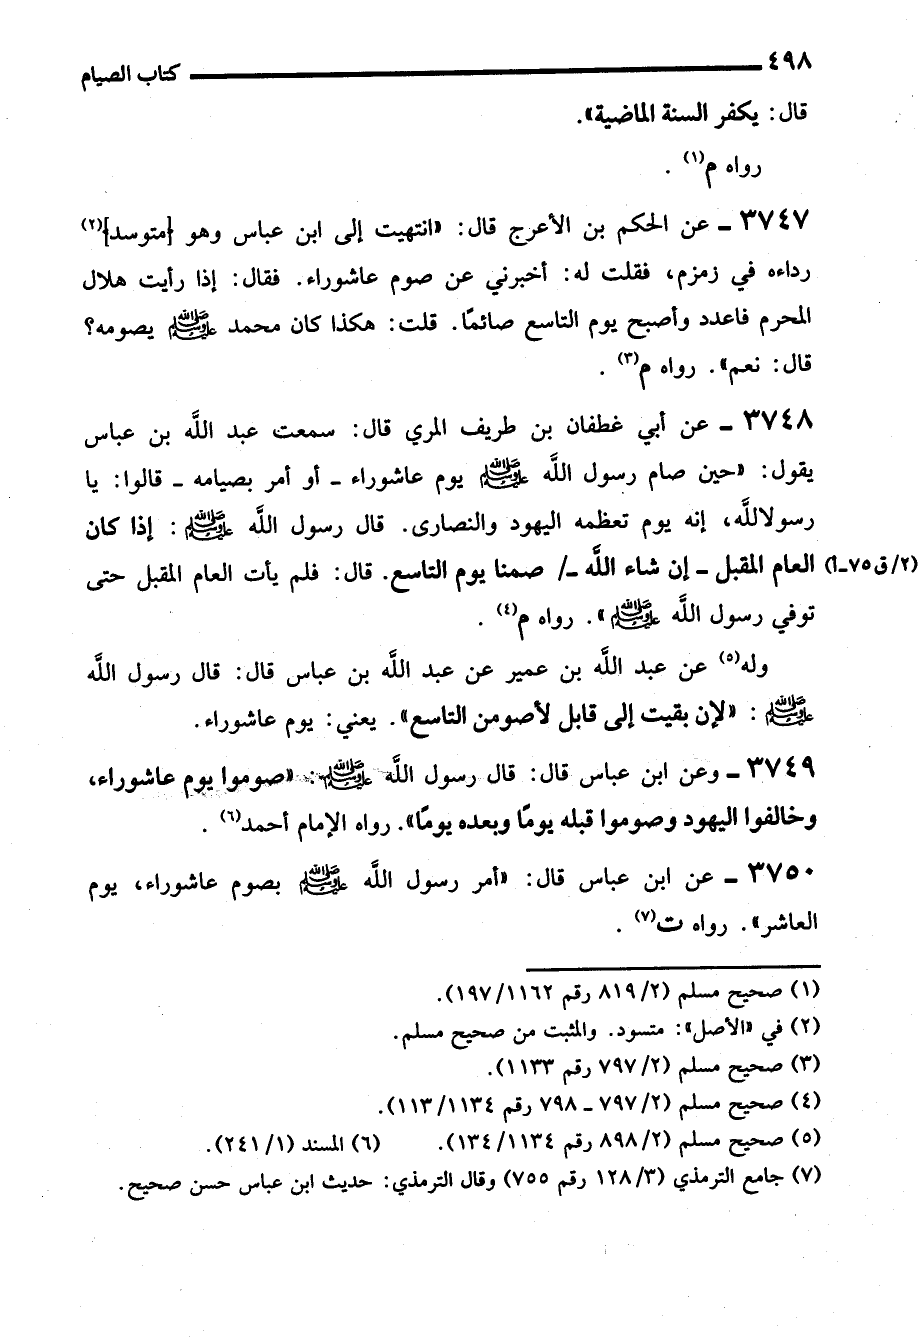 ٤٩٨ كتاب الصيام
قال: يكفر السنة الماضية».
رواه م(١) .
٣٧٤٧ ـ عن الحكم بن الأعرج قال: «انتهيت إلى ابن عباس وهو [متوسد](٢)
رداءه في زمزم، فقلت له: أخبرني عن صوم عاشوراء. فقال: إذا رأيت هلال
المحرم فاعدد وأصبح يوم التاسع صائمًا. قلت: هكذا كان محمد ﷺ يصومه؟
قال: نعم». رواه م(٣) .
٣٧٤٨ ـ عن أبي غطفان بن طريف المري قال: سمعت عبد اللَّه بن عباس
يقول: «حين صام رسول اللَّه ﷺ يوم عاشوراء ـ أو أمر بصيامه ـ قالوا: يا
رسولاللَّه، إنه يوم تعظمه اليهود والنصارى. قال رسول اللَّه ﷺ : إذا كان
العام المقبل ـ إن شاء اللَّه ـ/ صمنا يوم التاسع. قال: فلم يأت العام المقبل حتى (٢/ق٧٥ـأ)
توفي رسول اللَّه ﷺ». رواه م(٤) .
وله(٥) عن عبد اللَّه بن عمير عن عبد اللَّه بن عباس قال: قال رسول اللَّه
ﷺ : «لإن بقيت إلى قابل لأصومن التاسع». يعني: يوم عاشوراء.
٣٧٤٩ ـ وعن ابن عباس قال: قال رسول اللَّه ﷺ: «صوموا يوم عاشوراء،
وخالفوا اليهود وصوموا قبله يومًا وبعده يومًا». رواه الإمام أحمد(٦) .
٣٧٥٠ ـ عن ابن عباس قال: «أمر رسول اللَّه ﷺ بصوم عاشوراء، يوم
العاشر». رواه ت(٧) .
(١) صحيح مسلم (٢/ ٨١٩ رقم ١١٦٢/ ١٩٧).
(٢) في «الأصل»: متسود. والمثبت من صحيح مسلم.
(٣) صحيح مسلم (٢/ ٧٩٧ رقم ١١٣٣).
(٤) صحيح مسلم (٢/ ٧٩٧ ـ ٧٩٨ رقم ١١٣٤/ ١١٣).
(٥) صحيح مسلم (٢/ ٨٩٨ رقم ١١٣٤/ ١٣٤). (٦) المسند (١/ ٢٤١).
(٧) جامع الترمذي (٣/ ١٢٨ رقم ٧٥٥) وقال الترمذي: حديث ابن عباس حسن صحيح.